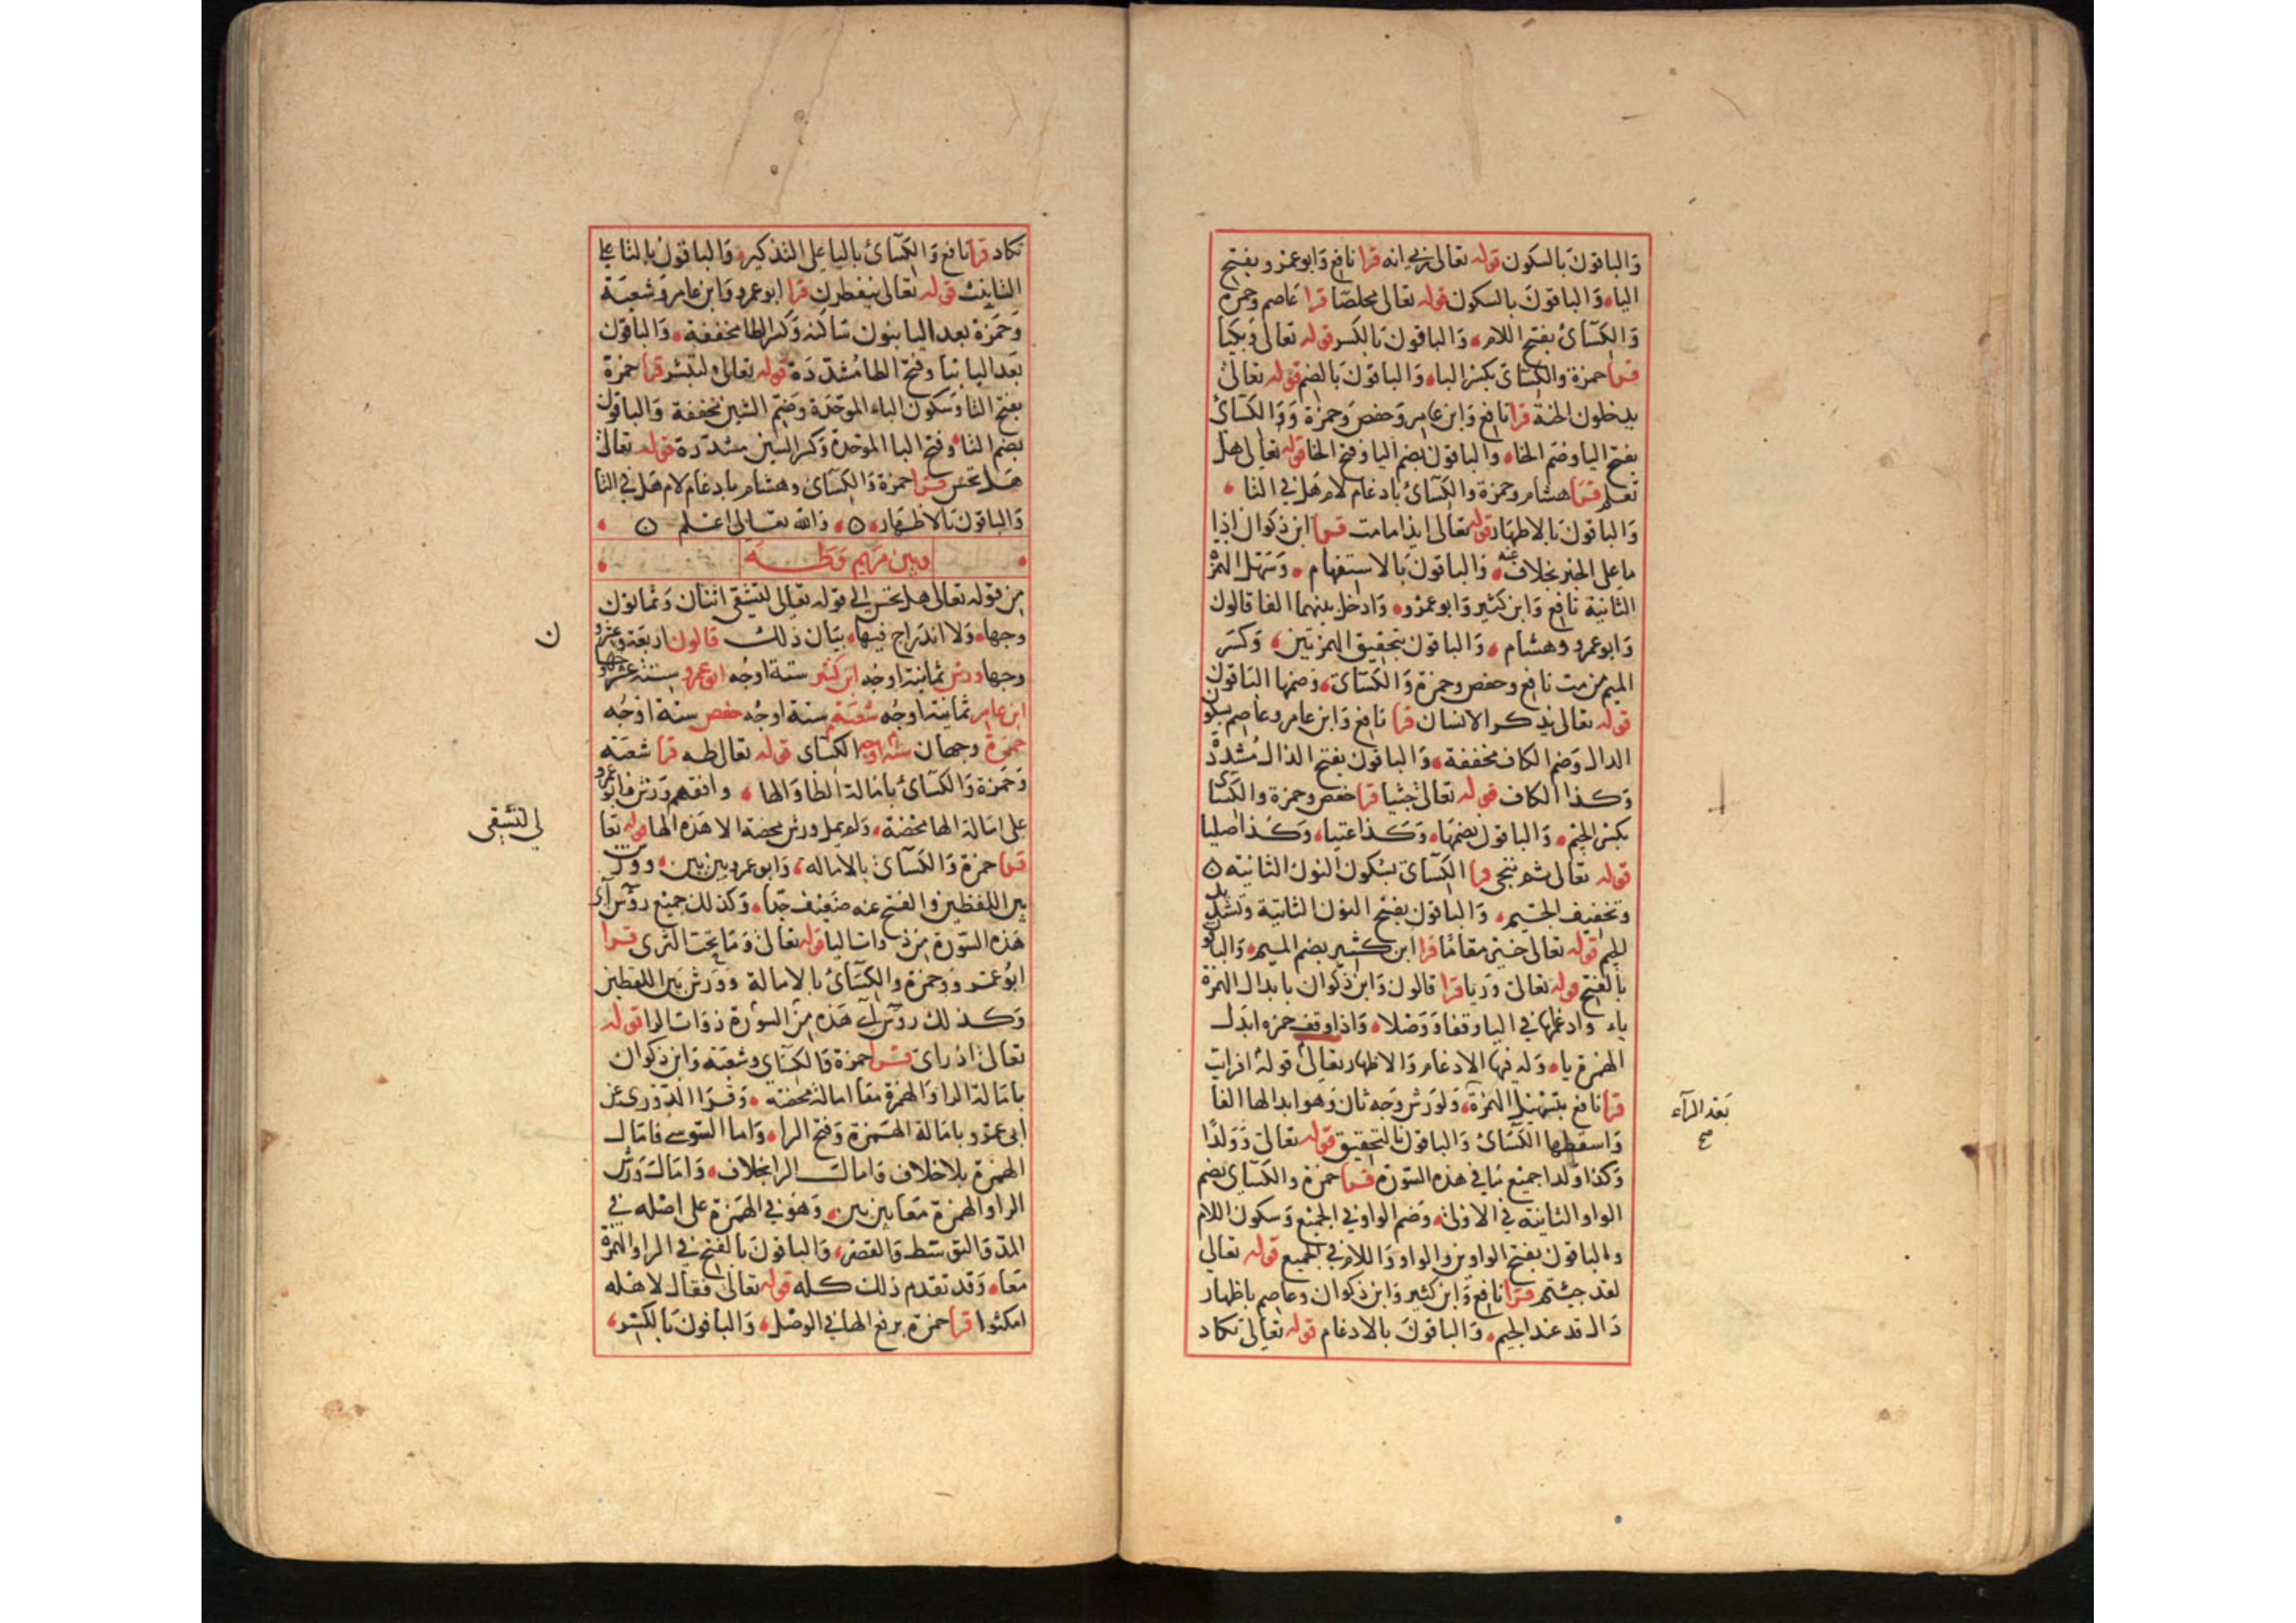 والباقون بالسكون قوله تعالى ربي انه قرا نافع وابوعمرو بفتح
الياء والباقون بالسكون قوله تعالى مخلصا قرا عاصم وحمزة
والكسائى بفتح اللام والباقون بالكسر قوله تعالى وبكيا
قرا حمزة والكسائى بكسر الباء والباقون بالضم قوله تعالى
يدخلون الجنة قرا نافع وابن عامر وحفص وحمزة ووالكسائى
بفتح اليا وضم الخاء والباقون بضم اليا وفتح الخا قوله تعالى هل
تعلم قرا هشام وحمزة والكسائى بادغام لام هل في التا
والباقون بالاظهار قوله تعالى ايذا مامت قرا ابن ذكوان اذا
ما على الخبر بخلاف عنه والباقون بالاستفهام وسهل الهمزة
الثانية نافع وابن كثير وابوعمرو وادخل بينهما الفا قالون
وابوعمرو وهشام والباقون بتحقيق الهمزتين وكسر
الميم من مت نافع وحفص وحمزة والكسائى وضمها الباقون
قوله تعالى يذكر الانسان قرا نافع وابن عامر وعاصم بسكون
الدال وضم الكاف مخففة والباقون بفتح الذال مشددة
وكذا الكاف قوله تعالى جثيا قرا حفص وحمزة والكسائى
بكسر الجيم والباقون بضمها وكذا عتيا وكذا صليا
قوله تعالى ثم ننجى قرا الكسائى بسكون النون الثانية
وتخفيف الجيم والباقون بفتح النون الثانية وتشديد
الجيم قوله تعالى خير مقاما قرا ابن كثير بضم الميم والباقو
بالفتح قوله تعالى وريا قرا قالون وابن ذكوان بابدال الهمزة
ياء وادغامها في اليا وقفا ووصلا واذا وقف حمزه ابدل
الهمزة ياء وله فيها الادغام والاظهار تعالى قوله افرايت
قرا نافع بتسهيل الهمزة ولورش وجه ثان وهو ابدالها الفا
بعد الرآء
صح
واسقطها الكسائى والباقون بالتحقيق قوله تعالى وولدا
وكذا ولدا جميع ما في هذه السورة قرا حمزة والكسائى بضم
الواو الثانية في الاولى وضم الواو في الجميع وسكون اللام
والباقون بفتح الواوين والواو واللام في الجميع قوله تعالى
لقد جيتم قرا نافع وابن كثير وابن ذكوان وعاصم باظهار
دال قد عند الجيم والباقون بالادغام قوله تعالى تكاد
تكاد قرا نافع والكسائى باليا على التذكير والباقون بالتا على
التانيث قوله تعالى ينفطرن قرا ابوعمرو وابن عامر وشعبة
وحمزة بعد اليا بنون ساكنه وكسر الطا مخففة والباقون
بعد اليا بتا وفتح الطا مشددة قوله تعالى لتبشر قرا حمزة
بفتح التا وسكون الباء الموحدة وضم الشين مخففة والباقون
بضم التاء وفتح البا الموحدة وكسر الشين مشددة قوله تعالى
هل تحس قرا حمزة والكسائى وهشام بادغام لام هل في التا
والباقون بالاظهار والله تعالى اعلم
وبين مريم وطه
من قوله تعالى هل تحس الى قوله تعالى لتشقى اثنان وثمانون
وجها ولا اندراج فيها بيان ذلك قالون اربعة وعشرو
ن
وجها ورش ثمانية اوجه ابن كثير ستة اوجه ابوعمرو ستة عشر وجها
ابن عامر ثمانية اوجه شعبة ستة اوجه حفص ستة اوجه
حمزة وجهان ستة اوجه الكسائى قوله تعالى طه قرا شعبة
وحمزة والكسائى بامالة الطا والها وافقهم ورش وابوعمرو
على امالة الها محضة ولم يمل ورش محضة الا هذه الها قوله تعا
لى لتشقى
قرا حمزة والكسائى بالاماله وابوعمرو بين بين وورش
بين اللفظين والفتح عنه ضعيف جدا وكذلك جميع روس آى
هذه السورة من ذوات اليا قوله تعالى وما تحت الثرى قرا
ابوعمرو وحمزة والكسائى بالامالة وورش بين اللفظين
وكذلك روس آى هذه من السورة ذوات الرا قوله
تعالى اذ راى قرا حمزة والكسائى وشعبة وابن ذكوان
بامالة الرا والهمزة معا امالة محضة وقرا الدورى عن
ابى عمرو بامالة الهمزة وفتح الرا واما السوسي فامال
الهمزة بلا خلاف وامالت الرا بخلاف وامالت ورش
الرا والهمزة معا بين بين وهو في الهمزة على اصله في
المد والتوسط والقصر والباقون بالفتح في الرا والهمزة
معا وقد تقدم ذلك كله قوله تعالى فقال لاهله
امكثوا قرا حمزة برفع الها في الوصل والباقون بالكسر